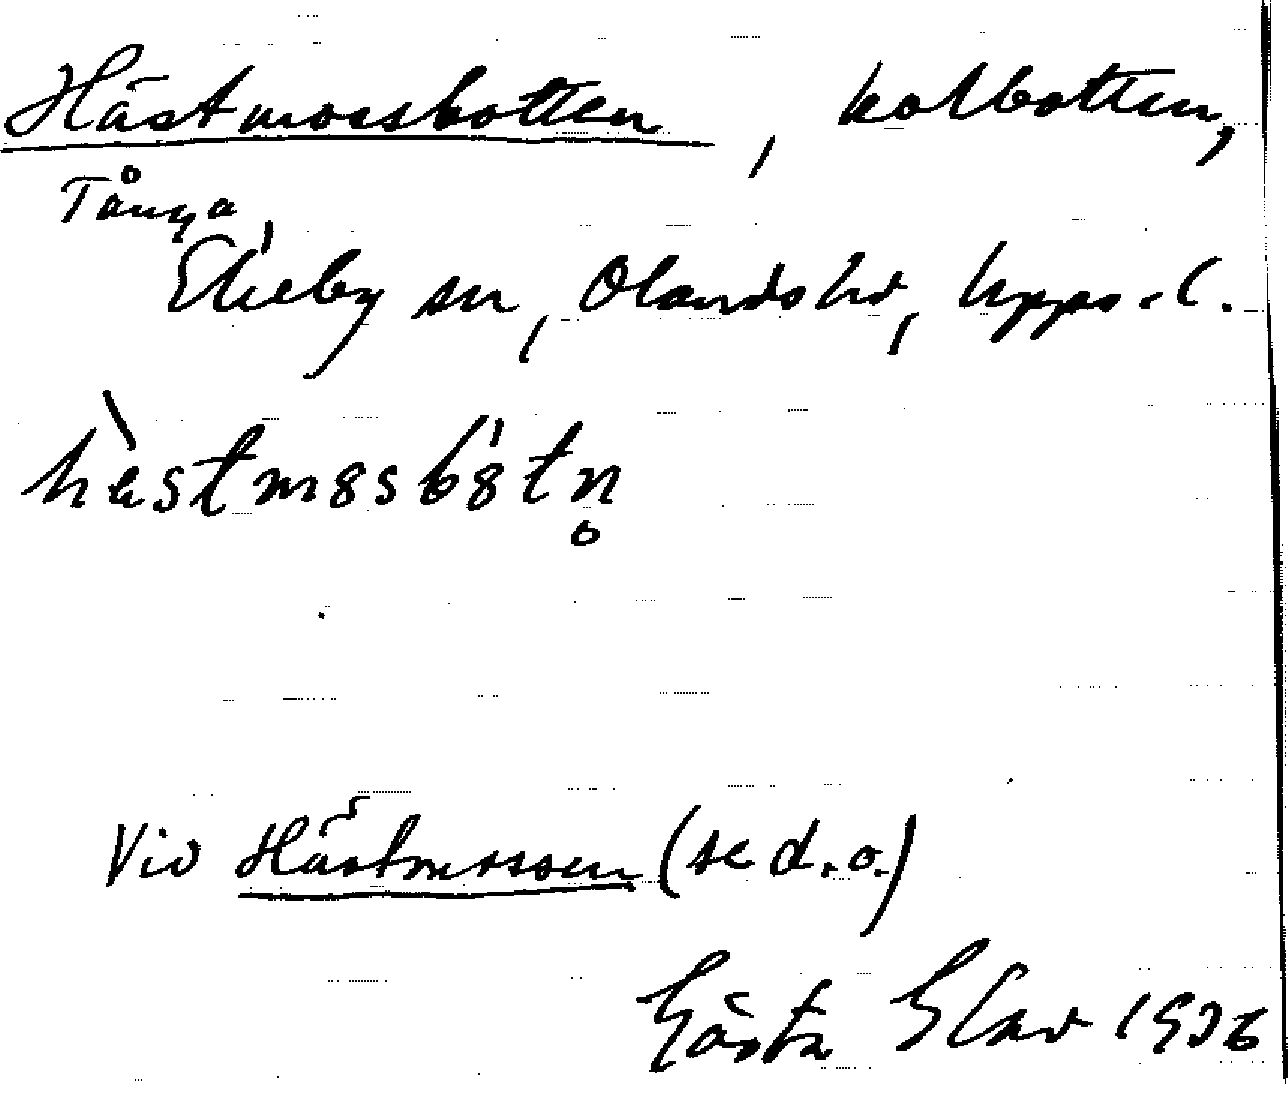 Hästmossbotten, kolbotten,
Tånga,
Ekeby sn, Olands hd, Upps. l.
hὲstm8sb8́tn̥
Vid Hästmossen (se d. o.)
Gösta Elav 1936